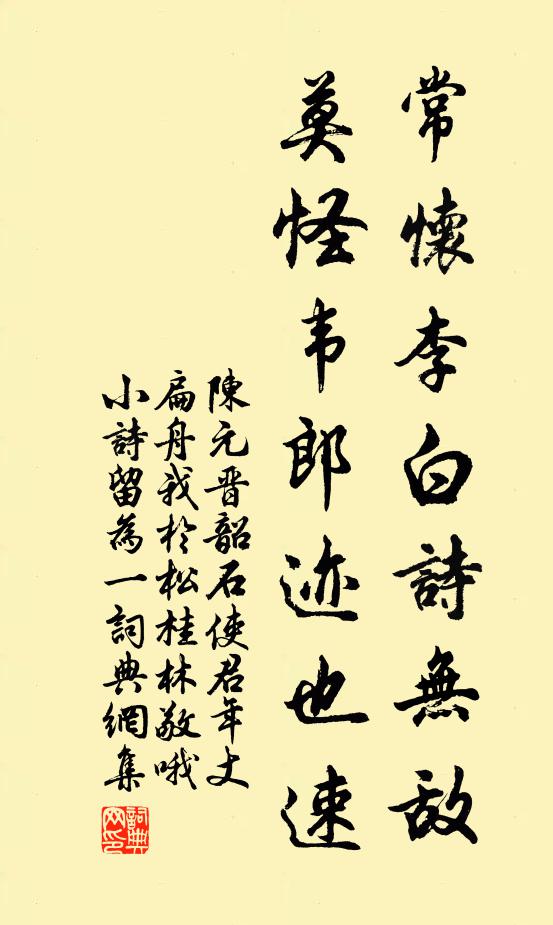 常懷李白詩無敵
莫怪韦郎迹也速
陳元晋韶石使君年丈
扁舟我於松桂林敬哦
小詩留為一詞典網集
詞典网印